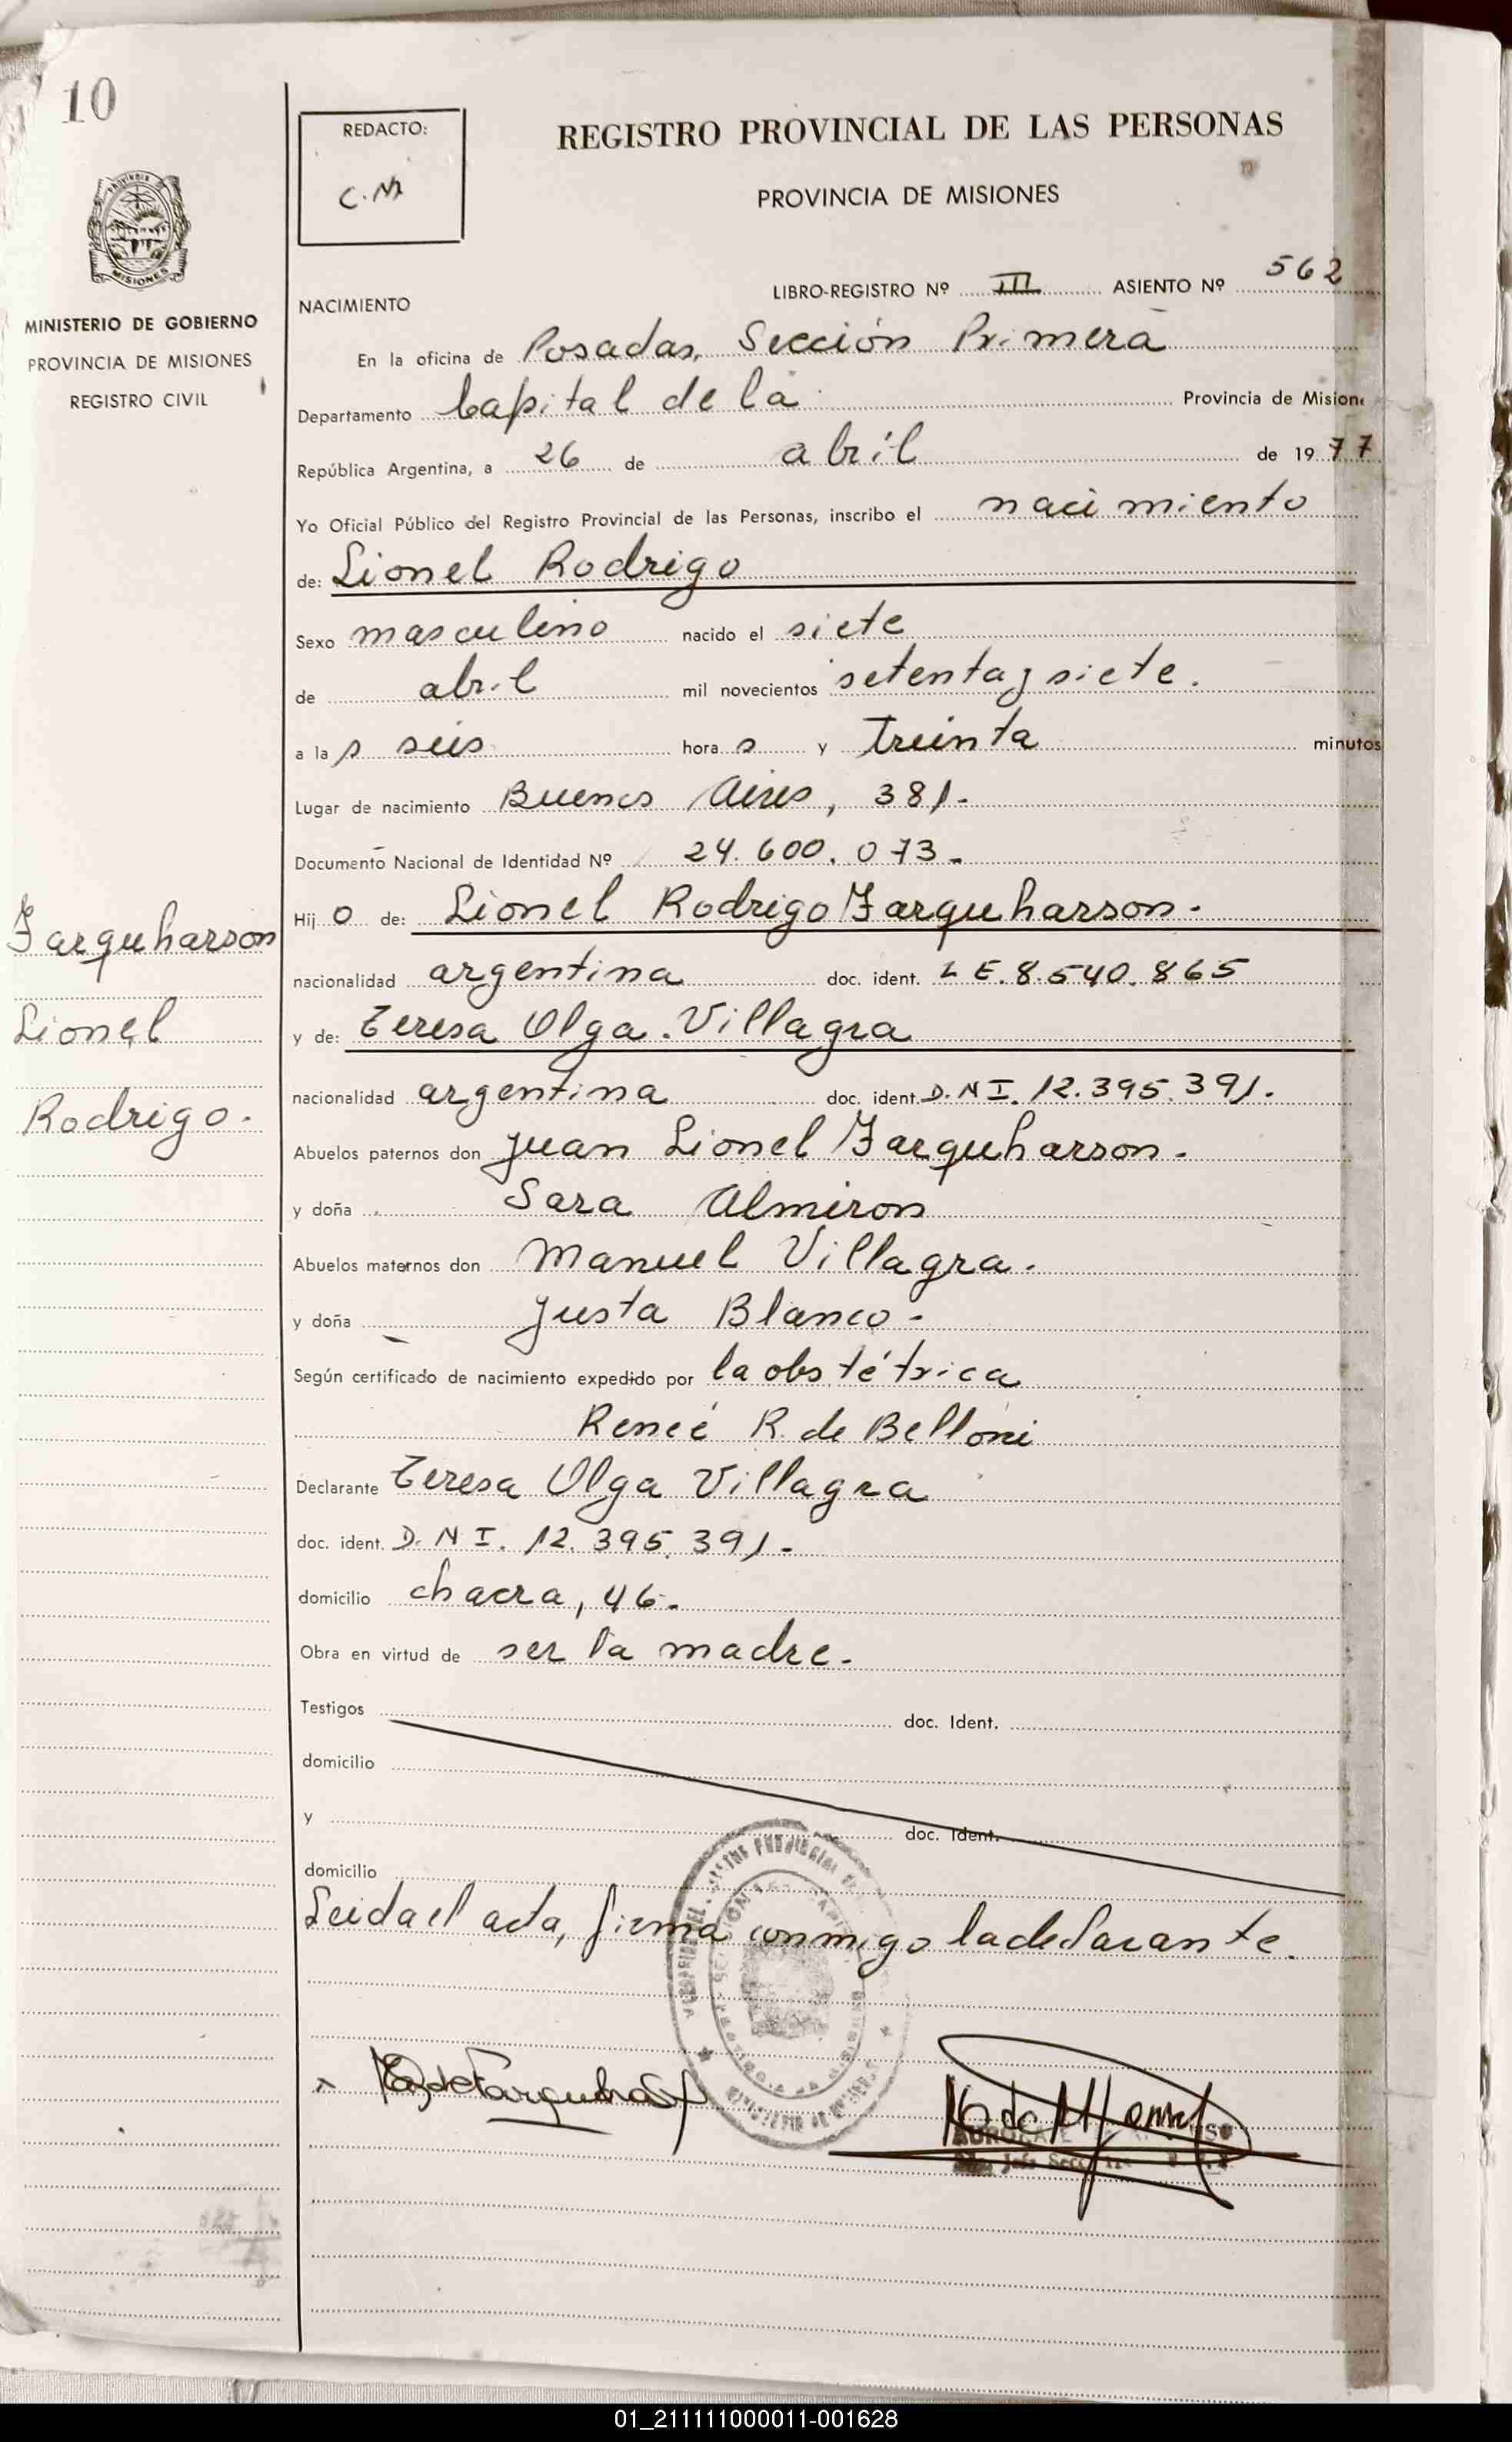 10
REDACTO:
C.M
REGISTRO PROVINCIAL DE LAS PERSONAS
PROVINCIA DE MISIONES
MISIONES
MINISTERIO DE GOBIERNO
PROVINCIA DE MISIONES
REGISTRO CIVIL
NACIMIENTO
LIBRO-REGISTRO Nº III ASIENTO Nº 562
En la oficina de Posadas, Sección Primera
Departamento Capital de la Provincia de Misione
República Argentina, a 26 de abril de 1977
Yo Oficial Público del Registro Provincial de las Personas, inscribo el nacimiento
de: Lionel Rodrigo
Sexo masculino nacido el siete
de abril mil novecientos setenta y siete.
a las seis horas y treinta minutos
Lugar de nacimiento Buenos Aires, 381.-
Documento Nacional de Identidad Nº 24.600.073.-
Farquharson
Lionel
Rodrigo.-
Hijo de: Lionel Rodrigo Farquharson.-
nacionalidad argentina doc. ident. L E. 8.540.865
y de: Teresa Olga Villagra
nacionalidad argentina doc. ident. D.N I. 12.395.391.-
Abuelos paternos don Juan Lionel Farquharson.-
y doña Sara Almiron
Abuelos maternos don Manuel Villagra.-
y doña Justa Blanco.-
Según certificado de nacimiento expedido por la obstétrica
Reneé R. de Belloni
Declarante Teresa Olga Villagra
doc. ident. D.N I. 12.395.391.-
domicilio chacra, 46.-
Obra en virtud de ser la madre.-
Testigos doc. Ident.
domicilio
y doc. Ident.
domicilio
Leida el acta, firma conmigo la declarante.
de Farquharson
01_211111000011-001628